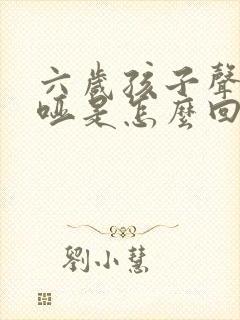 六歲孩子聲
啞是怎麼回
劉小慧